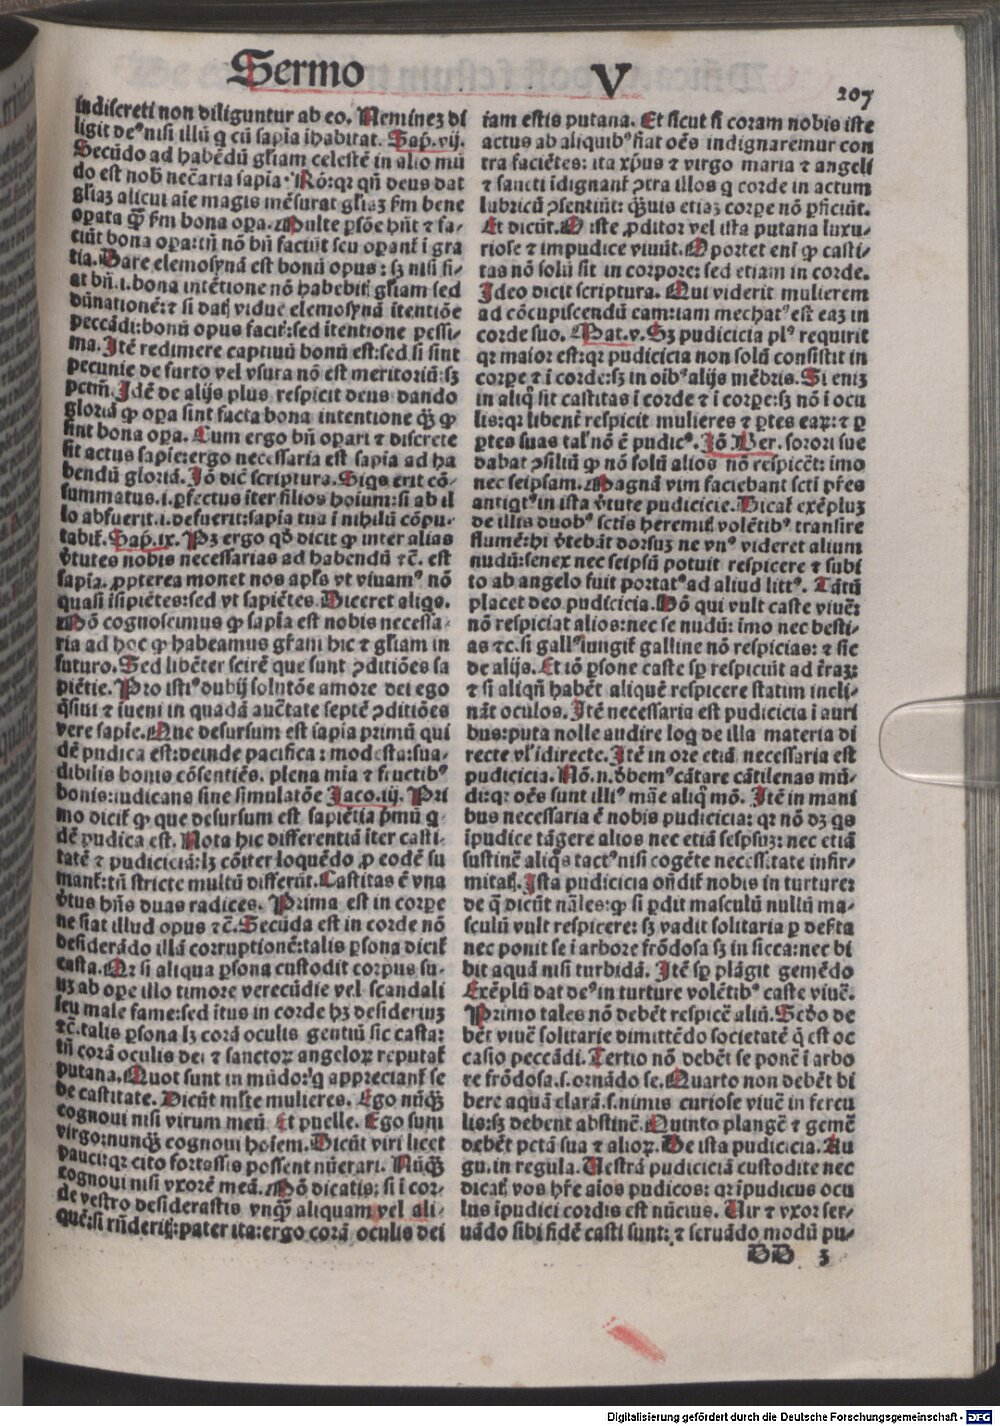 Sermo V 207
indiscreti non diliguntur ab eo. Neminez di
ligit deꝰ nisi illū q cū sapia ihabitat. Sap̄. vij.
Secūdo ad habēdū gl̄iam celestē in alio mū
do est nob̄ nec̄aria sapia. Rō: qꝛ qn̄ deus dat
gl̄iaz alicui aīe magis mēsurat gl̄iaz fm bene
opata ꝙ̄ fm bona opa. Multe ꝑsōe hn̄t ⁊ fa-
ciūt bona opa: tn̄ nō bn̄ faciūt seu opant̄ i gra
tia. Dare elemosynā est bonū opus: sꝫ nisi fi-
at bn̄. i. bona intētione nō habebit̄ gl̄iam sed
dānationē: ⁊ si dat̄ vidue elemosynā itentiōe
peccādi: bonū opus facit̄: sed itentione pessi-
ma. Itē redimere captiuū bonū est: sed si sint
pecunie de furto vel vsura nō est meritoriū: sꝫ
pctm̄. Idē de alijs plus respicit deus dando
gloriā ꝙ opa sint facta bona intentione q̄ꝫ ꝙ
sint bona opa. Cum ergo bn̄ opari ⁊ discrete
sit actus sapie: ergo necessaria est sapia ad ha
bendū gloriā. Iō dic̄ scriptura. Siqs erit cō-
summatus. i. ꝑfectus iter filios hoium: si ab il
lo abfuerit. i. defuerit: sapia tua i nihilū cōpu-
tabit̄. Sap̄. ix. Pꝫ ergo qd̄ dicit ꝙ inter alias
v̄tutes nobis necessarias ad habendū ⁊c̄. est
sapia. ꝓpterea monet nos apl̄s vt viuamꝰ nō
quasi isipiētes: sed vt sapiētes. Diceret aliqs.
Nō cognoscimus ꝙ sapia est nobis necessa-
ria ad hoc ꝙ habeamus gr̄am hic ⁊ gl̄iam in
futuro. Sed libēter scirē que sunt ↄditiōes sa
piētie. Pro istiꝰ dubij solutōe amore dei ego
q̄siui ⁊ iueni in quadā auc̄tate septē ↄditiōes
vere sapie. Que desursum est sapia primū qui
dē pudica est: deinde pacifica: modesta: sua-
dibilis bonis cōsentiēs. plena mia ⁊ fructibꝰ
bonis: iudicans sine simulatōe Iaco. iij. Pri
mo dicit̄ ꝙ que desursum est sapiētia p̄mū q-
dē pudica est. Nota hic differentiā iter casti-
tatē ⁊ pudiciciā: lꝫ cōiter loquēdo ꝓ eodē su
mant̄: tn̄ stricte multū differūt. Castitas ē vna
v̄tus hn̄s duas radices. Prima est in corpe
ne fiat illud opus ⁊c̄. Secūda est in corde nō
desiderādo illā corruptionē: talis ꝑsona dicit̄
casta. Qꝛ si aliqua ꝑsona custodit corpus su-
uꝫ ab ope illo timore verecūdie vel scandali
seu male fame: sed itus in corde hꝫ desideriuꝫ
⁊c̄. talis ꝑsona lꝫ corā oculis gentiū sic casta:
tn̄ corā oculis dei ⁊ sanctoꝝ angeloꝝ reputat̄
putana. Quot sunt in mūdo: q appreciant̄ se
de castitate. Dicūt mlte mulieres. Ego nūq̄ꝫ
cognoui nisi virum meū. Et puelle. Ego sum
virgo: nunq̄ꝫ cognoui hoiem. Dicūt viri licet
pauci: qꝛ cito fortassis possent nūerari. Nūq̄ꝫ
cognoui nisi vxorē meā. Nō dicatis: si i cor-
de vestro desiderastis vnq̄ꝫ aliquam vel ali-
quē: si rn̄derit̄: pater ita: ergo corā oculis dei
iam estis putana. Et sicut si coram nobis iste
actus ab aliquibꝰ fiat oēs indignaremur con
tra faciētes: ita xp̄us ⁊ virgo maria ⁊ angeli
⁊ sancti idignant̄ ↄtra illos q corde in actum
lubricū ↄsentiūt: q̄uis etiaꝫ corpe nō ꝑficiūt.
Et dicūt. O iste ꝓditor vel ista putana luxu-
riose ⁊ impudice viuūt. Oportet eni ꝙ casti-
tas nō solū sit in corpore: sed etiam in corde.
Ideo dicit scriptura. Qui viderit mulierem
ad cōcupiscendū eam: iam mechatꝰ est eaꝫ in
corde suo. Mat. v. Sꝫ pudicicia plꝰ requirit
qꝛ maior est: qꝛ pudicicia non solū consistit in
corpe ⁊ i corde: sꝫ in oibꝰ alijs mēbris. Si eniꝫ
in aliq̄ sit castitas i corde ⁊ i corpe: sꝫ nō i ocu
lis: qꝛ libent̄ respicit mulieres ⁊ ꝑtes eaꝝ: ⁊ ꝑ
ptes suas tal̄ nō ē pudicꝰ. Iō Ber. sorori sue
dabat ↄsiliū ꝙ nō solū alios nō respicēt: imo
nec seipsam. Magnā vim faciebant scti pr̄es
antiqtꝰ in ista v̄tute pudicicie. Dicat̄ exēpluꝫ
de illis duobꝰ sctis heremit̄ volētibꝰ transire
flumē: hi v̄tebāt dorsuꝫ ne vnꝰ videret alium
nudū: senex nec seipsū potuit respicere ⁊ subi
to ab angelo fuit portatꝰ ad aliud littꝰ. Tātū
placet deo pudicicia. Nō qui vult caste viuē:
nō respiciat alios: nec se nudū: imo nec besti-
as ⁊c. si gallꝰ iungit̄ galline nō respicias: ⁊ sic
de alijs. Et iō ꝑsone caste sꝑ respiciūt ad t̄raꝫ:
⁊ si aliqn̄ habēt aliquē respicere statim incli-
nāt oculos. Itē necessaria est pudicicia i auri
bus: puta nolle audire loq de illa materia di
recte vl̄ idirecte. Itē in ore etiā necessaria est
pudicicia. Nō. n. d̄bemꝰ cātare cātilenas mū-
di: qꝛ oēs sunt illiꝰ māe aliq̄ mō. Itē in mani
bus necessaria ē nobis pudicicia: qꝛ nō dꝫ qs
ipudice tāgere alios nec etiā seipsuꝫ: nec etiā
sustinē aliq̄s tactꝰ nisi cogēte necessitate infir-
mitat̄. Ista pudicicia on̄dit̄ nobis in turture:
de q̄ dicūt nāles: ꝙ si ꝑdit masculū nullū ma-
sculū vult respicere: sꝫ vadit solitaria ꝑ deserta
nec ponit se i arbore frōdosa sꝫ in sicca: nec bi
bit aquā nisi turbidā. Itē sꝑ plāgit gemēdo
Exēplū dat deꝰ in turture volētibꝰ caste viuē.
Primo tales nō debēt respicē aliū. Scd̄o de
bēt viuē solitarie dimittēdo societatē q̄ est oc
casio peccādi. Tertio nō debēt se ponē i arbo
re frōdosa. s. ornādo se. Quarto non debēt bi
bere aquā clarā. s. nimis curiose viuē in fercu
lis: sꝫ debent abstinē. Quinto plangē ⁊ gemē
debēt pctā sua ⁊ alioꝝ. De ista pudicicia. Au
gu. in regula. Vestrā pudiciciā custodite nec
dicat̄ vos hr̄e aios pudicos: qꝛ ipudicus ocu
lus ipudici cordis est nūcius. Uir ⁊ vxor ser-
uādo sibi fidē casti sunt: ⁊ seruādo modū pu-
DD 3
Digitalisierung gefördert durch die Deutsche Forschungsgemeinschaft - DFG